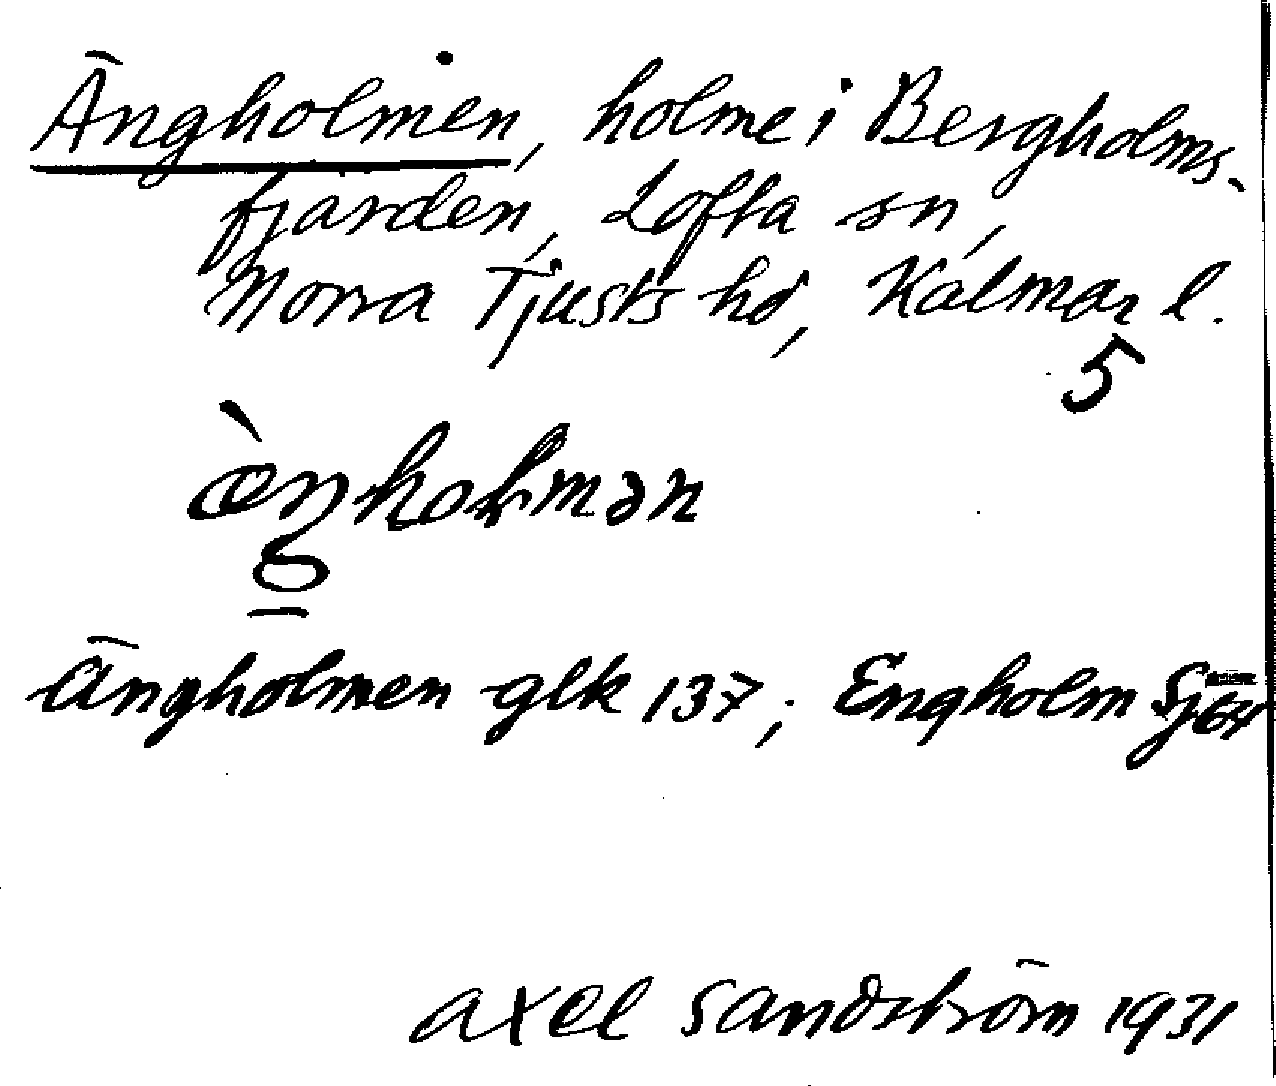 Ängholmen, holme i Bergholms-
fjärden, Lofta sn,
Norra Tjusts hd, Kalmar l.
5
æ̀ŋhoɬmən
Ängholmen glk 137; Engholm Sj64
Axel Sandström 1931